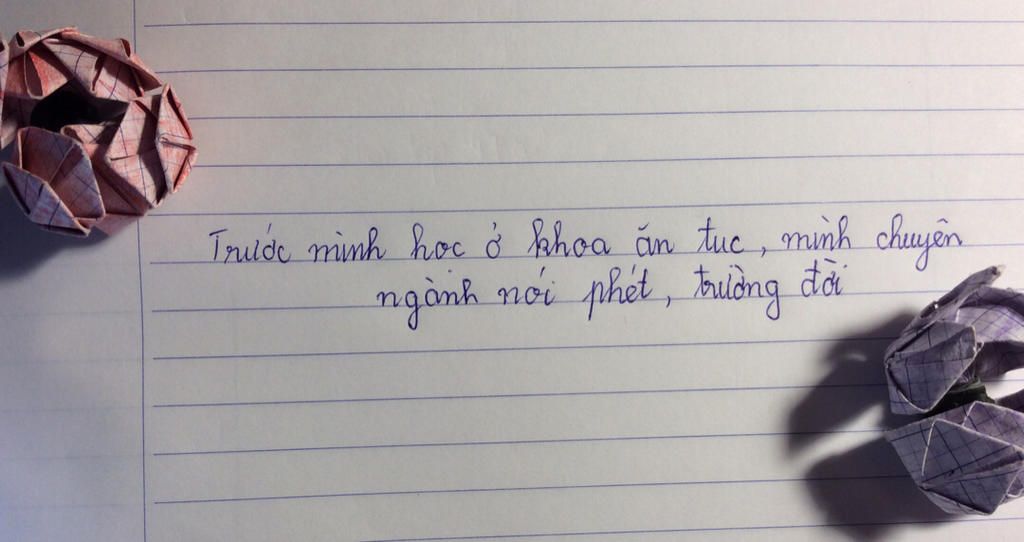 Trước mình học ở khoa ăn tục, mình chuyên
ngành nói phét, trường đời